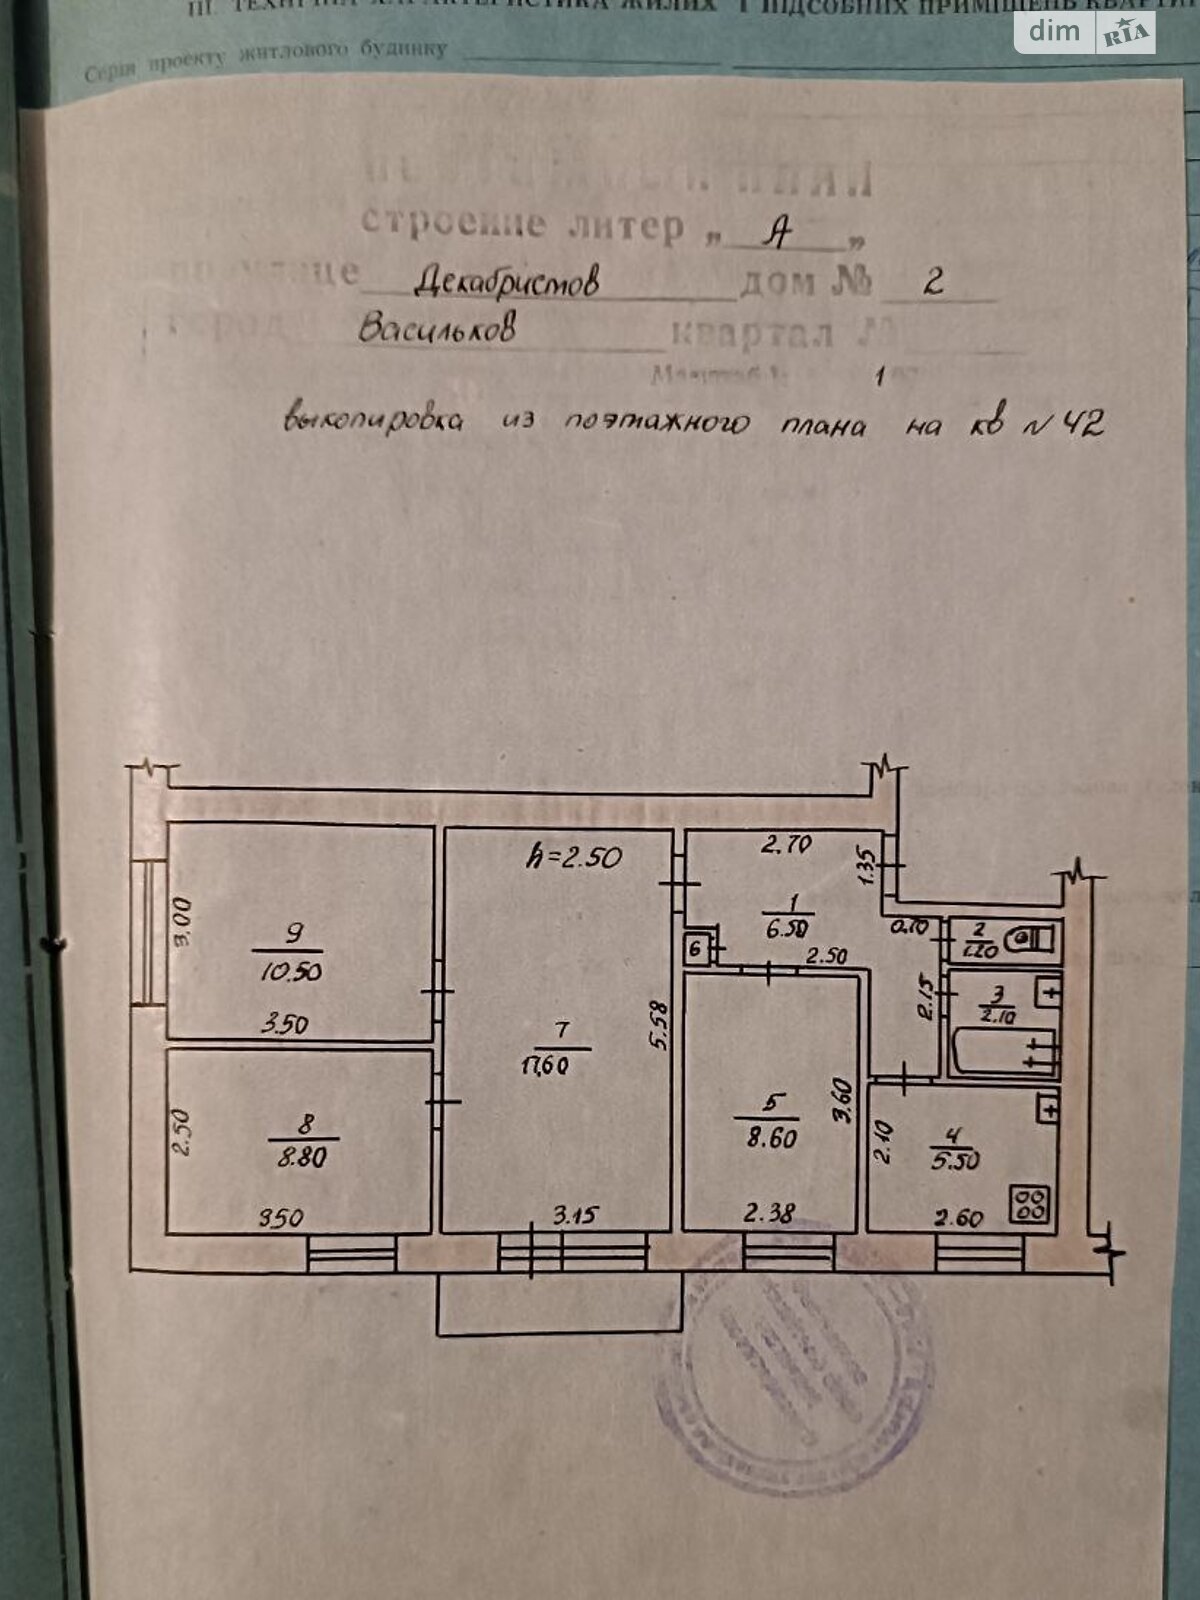 III. ТЕХНІЧНА ХАРАКТЕРИСТИКА ЖИЛИХ І ПІДСОБНИХ ПРИМІЩЕНЬ КВАРТИ
dim RIA
Серія проекту житлового будинку
строение литер „ А „
по улице Декабристов дом № 2
город Васильков квартал №
Масштаб 1
выкопировка из поэтажного плана на кв N 42
h=2.50
2.70
1.35
9
10.50
3.00
3.50
1
6.50
6
2.50
0,70
2
1.20
3
2.10
2.15
7
17,60
5.58
3.15
8
8.80
2.50
3.50
5
8.60
3.60
2.38
4
5.50
2.10
2.60